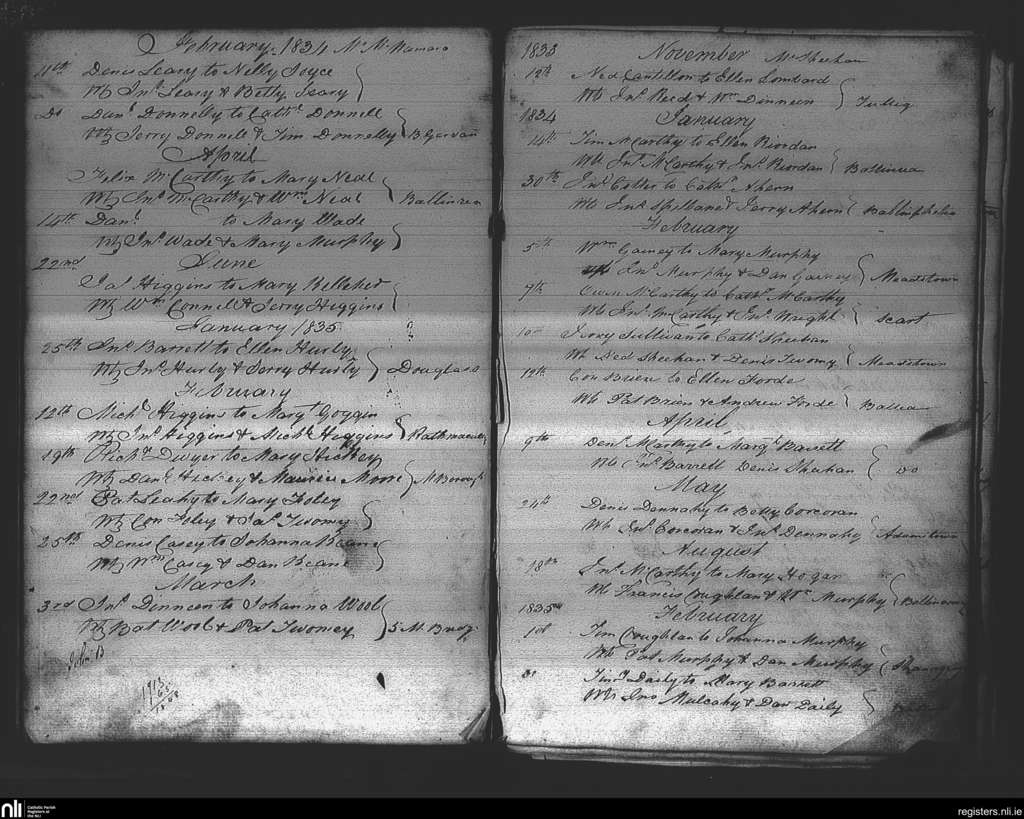 February 1834 Mr McNamara
11th Denis Leary to Nelly Joyce
Ws Jno Leary & Betty Leary
Do Danl Donnelly to Cathe Donnell
Ws Jerry Donnell & Tim Donnelly
April
Felix McCarthy to Mary Neal
Ws Jno McCarthy & Wm Neal Ballinrea
14th Danl to Mary Wade
Ws Jno Wade & Mary Murphy
22nd June
Jas Higgins to Mary Kelleher
Ws Wm Connell & Jerry Higgins
January 1835
25th Jno Barrett to Ellen Hurly
Ws Jno Hurly & Jerry Hurly Douglass
February
12th Michl Higgins to Margt Goggin
Ws Jno Higgins & Michl Higgins
19th Richd Dwyer to Mary Hickey
Ws Danl Hickey & Maurice
22nd Pat Leahy to Mary Foley
Ws Con Foley & Jas Twomey
25th Denis Casey to Johanna Keane
Ws Wm Casey & Dan Keane
March
3rd Jno Dinneen to Johanna Wool
Ws Bat Wool & Pat Twomey 5 M.
John B
1833 November Mr Sheehan
12th Ned Cantillon to Ellen Lombard
Ws Jno Reed & Wm Dinneen
1834 January
14th Tim McCarthy to Ellen Riordan
Ws Jno McCarthy & Jno Riordan Ballinrea
30th Jno to Cathe Ahern
Ws Jno Spillane & Jerry Ahern
February
5th Wm Gainey to Mary Murphy
Ws Jno Murphy & Dan Gainey Meadstown
7th Owen McCarthy to Cathe McCarthy
Ws Jno McCarthy & Jno Wright Scart
10 Jerry Sullivan to Cathe Sheehan
Ws Ned Sheehan & Denis Twomy Meadstown
12th Con Brien to Ellen Forde
Ws Pat Brien & Andrew Forde Ballea
April
9th Denl McCarthy to Margt Barrett
Ws Jno Barrett Denis Shahan Do
May
24th Denis Dennahy to Betty Corcoran
Ws Jno Corcoran & Jno Dennahy
August
18th Jno McCarthy to Mary Hogan
Ws Francis Coughlan & Wm Murphy
1835 February
1st Tim Coughlan to Johanna Murphy
Ws Pat Murphy & Dan Murphy
Timy Daily to Mary Barrett
Ws Jno Mulcahy & Dan Daily
nli
Catholic Parish
Registers at
the NLI
registers.nli.ie